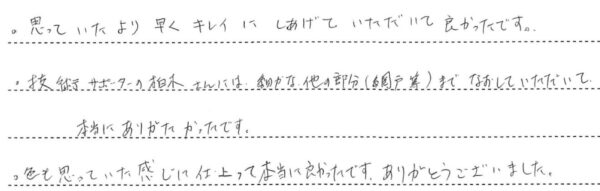 。思って いた より 早く キレイ に しあげて いただいて 良かったです。
。技術 サポーターの 柏木 さんには、細かな 他の部分(網戸 等)まで なおして いただいて、
本当に ありがた かったです。
。色も 思っていた 感じに 仕上って 本当に 良かったです。ありがとうございました。